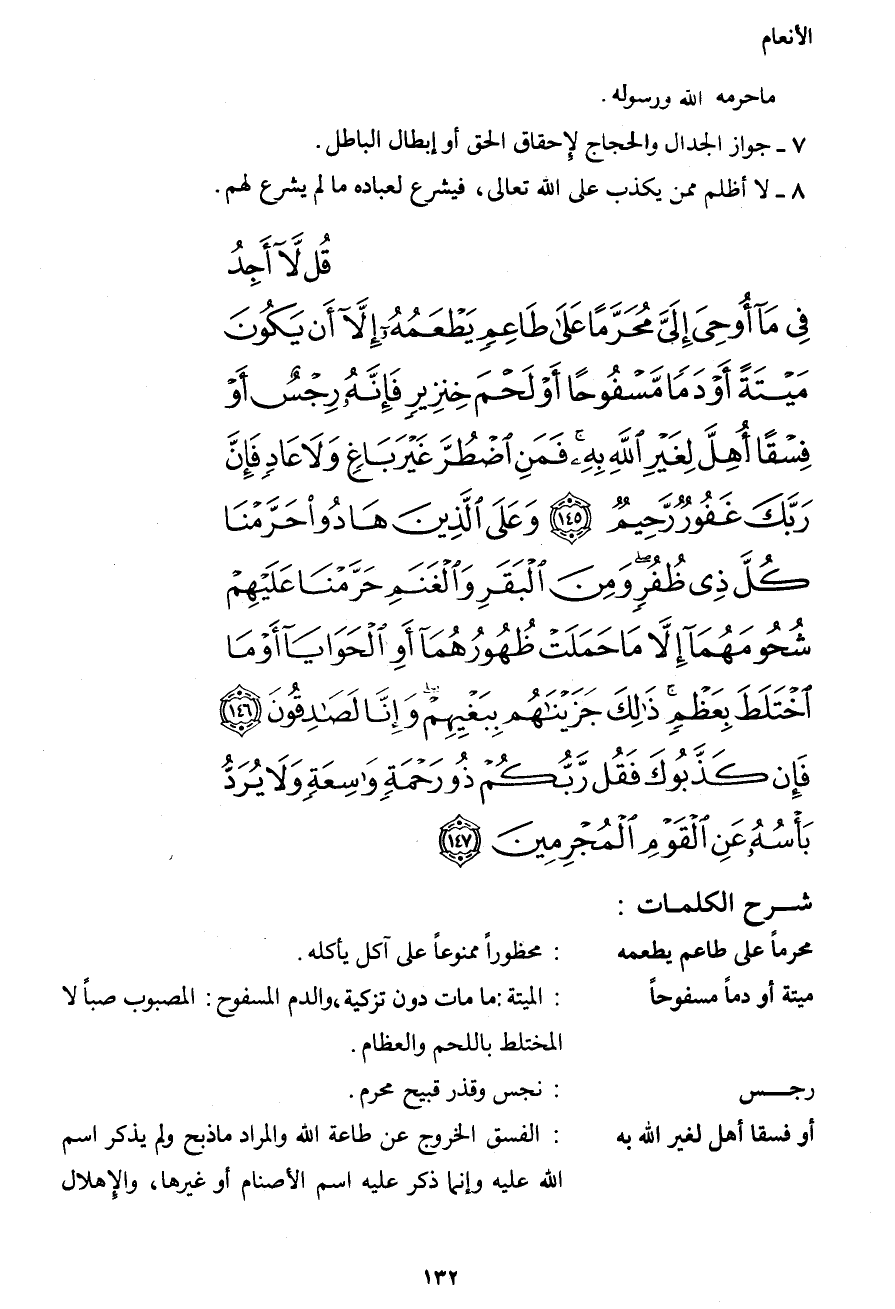 الأنعام
ماحرمه الله ورسوله .
٧ - جواز الجدال والحجاج لإحقاق الحق أو إبطال الباطل .
٨ - لا أظلم ممن يكذب على الله تعالى، فيشرع لعباده ما لم يشرع لهم .
قُل لَّآ أَجِدُ
فِى مَآ أُوحِىَ إِلَىَّ مُحَرَّمًا عَلَىٰ طَاعِمٍ يَطْعَمُهُۥٓ إِلَّآ أَن يَكُونَ
مَيْتَةً أَوْ دَمًا مَّسْفُوحًا أَوْ لَحْمَ خِنزِيرٍ فَإِنَّهُۥ رِجْسٌ أَوْ
فِسْقًا أُهِلَّ لِغَيْرِ ٱللَّهِ بِهِۦ ۚ فَمَنِ ٱضْطُرَّ غَيْرَ بَاغٍ وَلَا عَادٍ فَإِنَّ
رَبَّكَ غَفُورٌ رَّحِيمٌ ١٤٥ وَعَلَى ٱلَّذِينَ هَادُوا۟ حَرَّمْنَا
كُلَّ ذِى ظُفُرٍ ۖ وَمِنَ ٱلْبَقَرِ وَٱلْغَنَمِ حَرَّمْنَا عَلَيْهِمْ
شُحُومَهُمَآ إِلَّا مَا حَمَلَتْ ظُهُورُهُمَآ أَوِ ٱلْحَوَايَآ أَوْ مَا
ٱخْتَلَطَ بِعَظْمٍ ۚ ذَٰلِكَ جَزَيْنَٰهُم بِبَغْيِهِمْ ۖ وَإِنَّا لَصَٰدِقُونَ ١٤٦
فَإِن كَذَّبُوكَ فَقُل رَّبُّكُمْ ذُو رَحْمَةٍ وَٰسِعَةٍ وَلَا يُرَدُّ
بَأْسُهُۥ عَنِ ٱلْقَوْمِ ٱلْمُجْرِمِينَ ١٤٧
شرح الكلمات :
محرماً على طاعم يطعمه : محظوراً ممنوعاً على آكل يأكله .
ميتة أو دماً مسفوحاً : الميتة : ما مات دون تزكية، والدم المسفوح : المصبوب صباً لا
المختلط باللحم والعظام .
رجس : نجس وقذر قبيح محرم .
أو فسقا أهل لغير الله به : الفسق الخروج عن طاعة الله والمراد ماذبح ولم يذكر اسم
الله عليه وإنما ذكر عليه اسم الأصنام أو غيرها، والإهلال
١٣٢